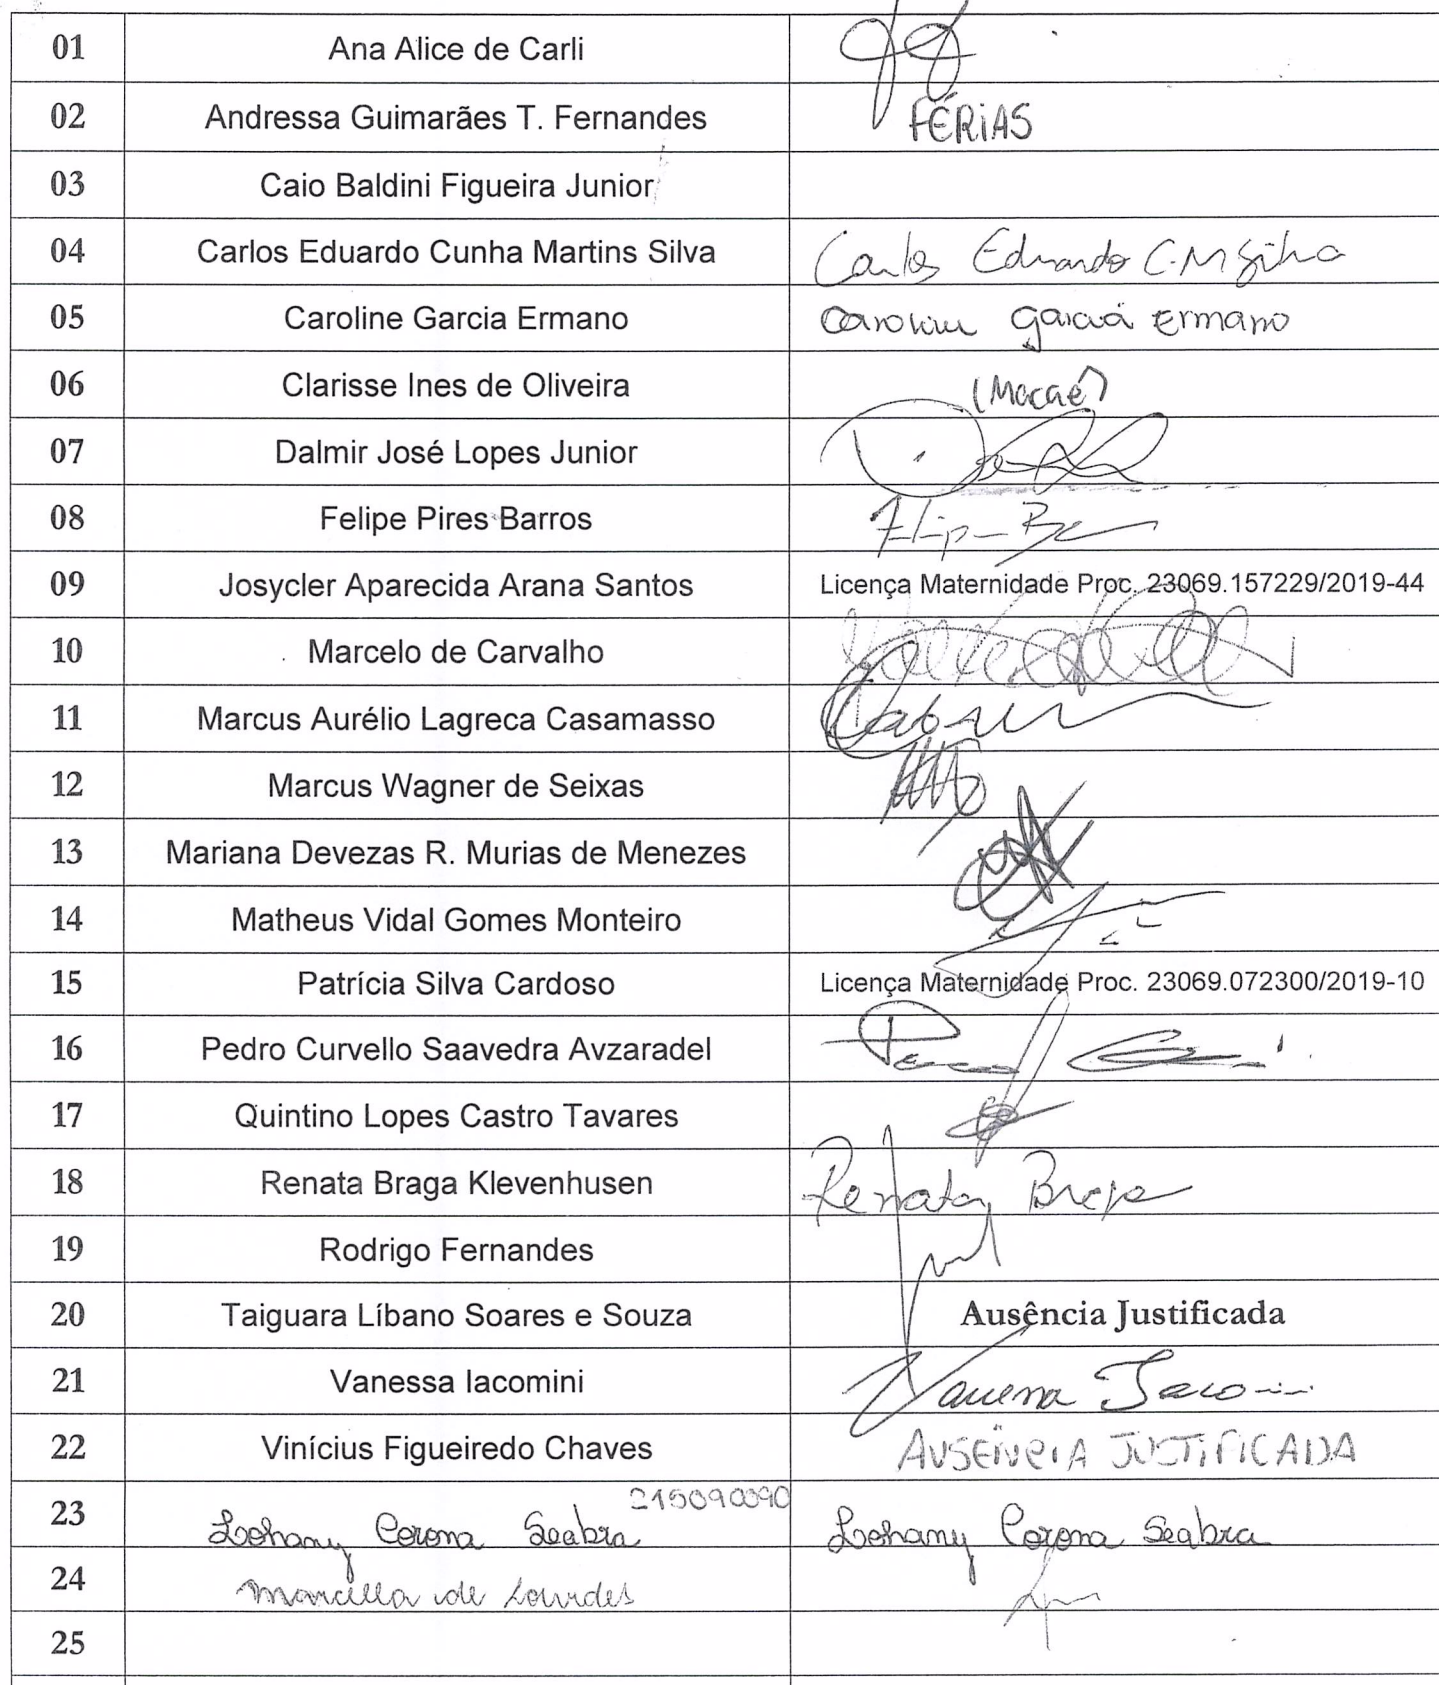 01 Ana Alice de Carli
02 Andressa Guimarães T. Fernandes FÉRIAS
03 Caio Baldini Figueira Junior
04 Carlos Eduardo Cunha Martins Silva Carlos Eduardo C.M Silva
05 Caroline Garcia Ermano Caroline Garcia Ermano
06 Clarisse Ines de Oliveira (Macaé)
07 Dalmir José Lopes Junior
08 Felipe Pires Barros
09 Josycler Aparecida Arana Santos Licença Maternidade Proc. 23069.157229/2019-44
10 Marcelo de Carvalho
11 Marcus Aurélio Lagreca Casamasso
12 Marcus Wagner de Seixas
13 Mariana Devezas R. Murias de Menezes
14 Matheus Vidal Gomes Monteiro
15 Patrícia Silva Cardoso Licença Maternidade Proc. 23069.072300/2019-10
16 Pedro Curvello Saavedra Avzaradel
17 Quintino Lopes Castro Tavares
18 Renata Braga Klevenhusen Renata Braga
19 Rodrigo Fernandes
20 Taiguara Líbano Soares e Souza Ausência Justificada
21 Vanessa Iacomini Vanessa Iacomini
22 Vinícius Figueiredo Chaves AUSÊNCIA JUSTIFICADA
23 Lohany Corona Seabra 215090090 Lohany Corona Seabra
24 Marcella de Lourdes
25